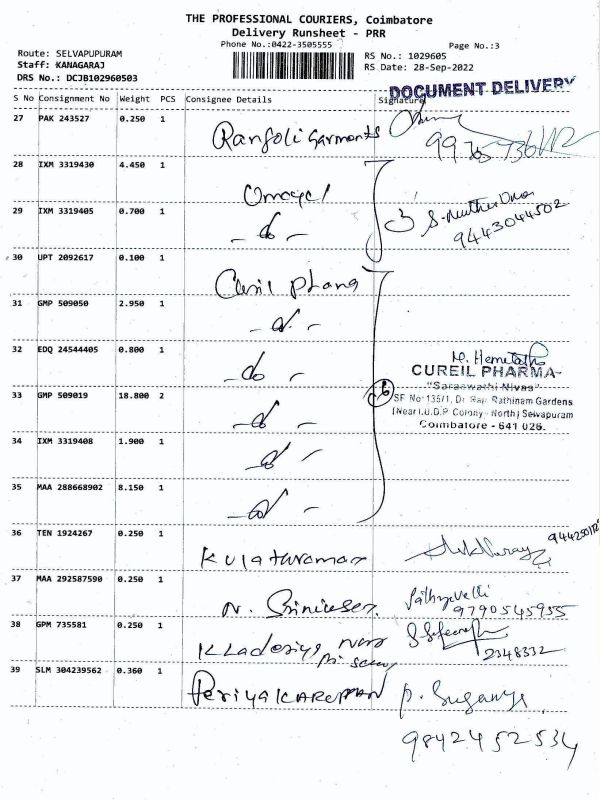 THE PROFESSIONAL COURIERS, Coimbatore
Delivery Runsheet - PRR
Phone No.:0422-3505555
Page No.:3
Route: SELVAPUPURAM
Staff: KANAGARAJ
DRS No.: DCJB102960503
RS No.: 1029605
RS Date: 28-Sep-2022
DOCUMENT DELIVERY
S No Consignment No Weight PCS Consignee Details Signature
27 PAK 243527 0.250 1 Rangoli Garments
28 IXM 3319430 4.450 1
29 IXM 3319405 0.700 1 - do - 3
9443044502
30 UPT 2092617 0.100 1
31 GMP 509050 2.950 1 - do -
32 EDQ 24544405 0.800 1 - do -
33 GMP 509019 18.800 2 - do - 6
34 IXM 3319408 1.900 1 - do -
35 MAA 288668902 8.150 1 - do -
CUREIL PHARMA
"Saraswathi Nivas"
SF No 135/1, Dr. Raju Rathinam Gardens
(Near I.U.D.P Colony - North) Selvapuram
Coimbatore - 641 026.
36 TEN 1924267 0.250 1
37 MAA 292587590 0.250 1 N. Srinivasan
9790545955
38 GPM 735581 0.250 1
2348332
39 SLM 304239562 0.360 1 Periyakaruppan P. Suganya
9842452534